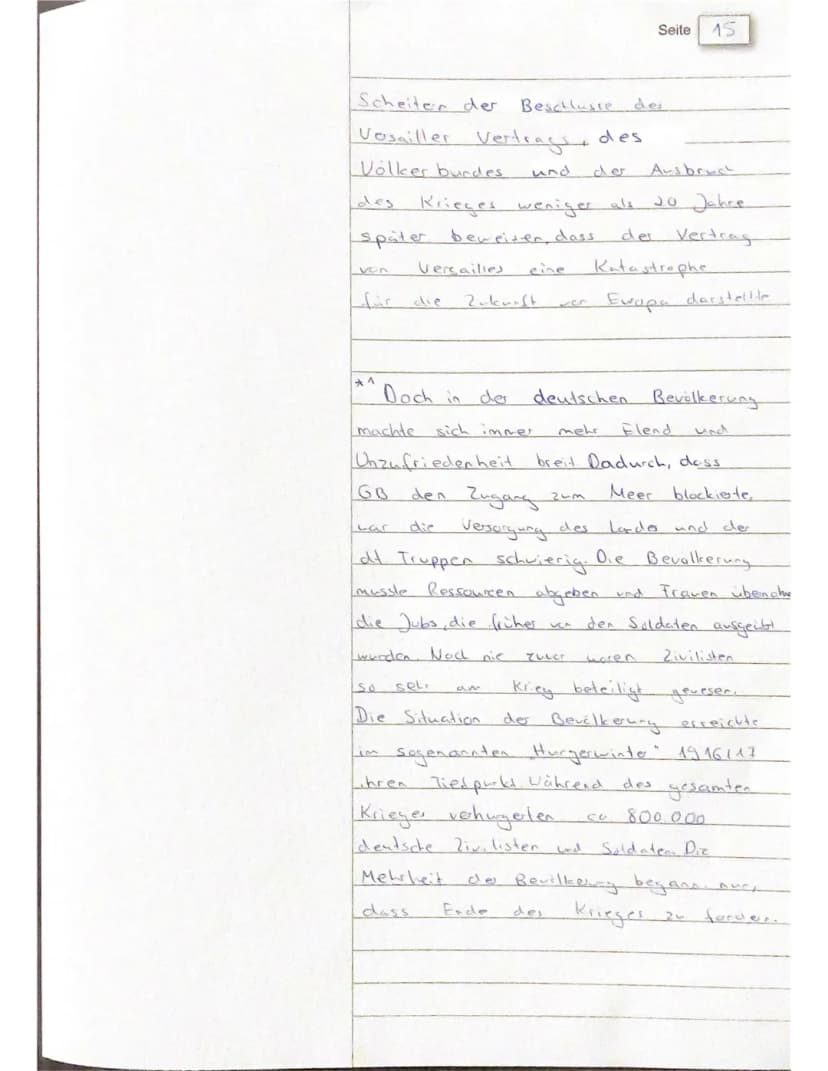 Seite 15
Scheiten der Beschlusse des
Vesailler Vertrags, des
Völkerbundes und der Ausbruch
des Krieges weniger als 20 Jahre
später beweisen, dass der Vertrag
von Versailles eine Katastrophe
für die Zukunft von Europa darstellte
*1 Doch in der deutschen Bevölkerung
machte sich immer mehr Elend und
Unzufriedenheit breit. Dadurch, dass
GB den Zugang zum Meer blockierte,
war die Versorgung des Landes und der
dt Truppen schwierig. Die Bevölkerung
musste Ressourcen abgeben und Frauen
die Jobs, die früher von den Soldaten ausgeübt
wurden. Noch nie zuvor waren Zivilisten
so sehr am Krieg beteiligt gewesen.
Die Situation der Bevölkerung erreichte
im sogenannten „Hungerwinter" 1916/17
ihren Tiefpunkt. Während des gesamten
Krieges verhungerten ca 800.000
deutsche Zivilisten und Soldaten. Die
Mehrheit der Bevölkerung begann nun,
dass Ende des Krieges zu fordern.